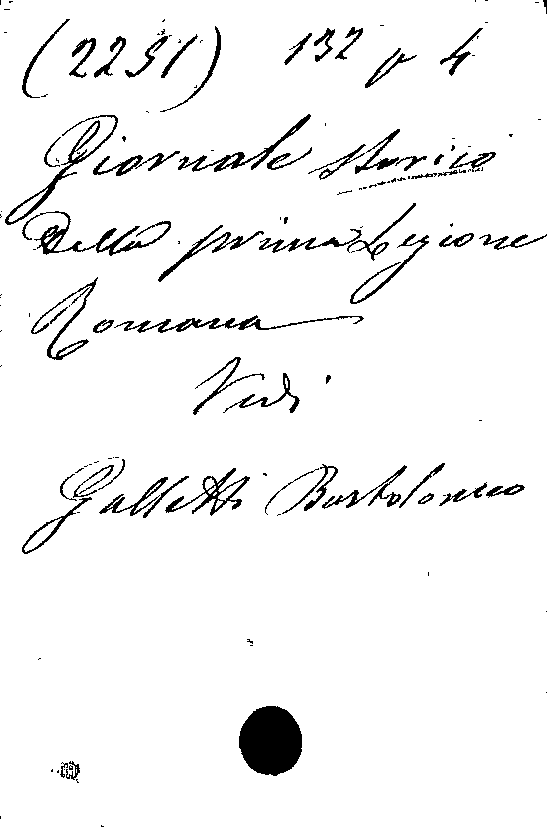 (2251) 132 p 4
Giornale storico
Della prima Legione
Romana
Vedi
Galletti Bartolomeo